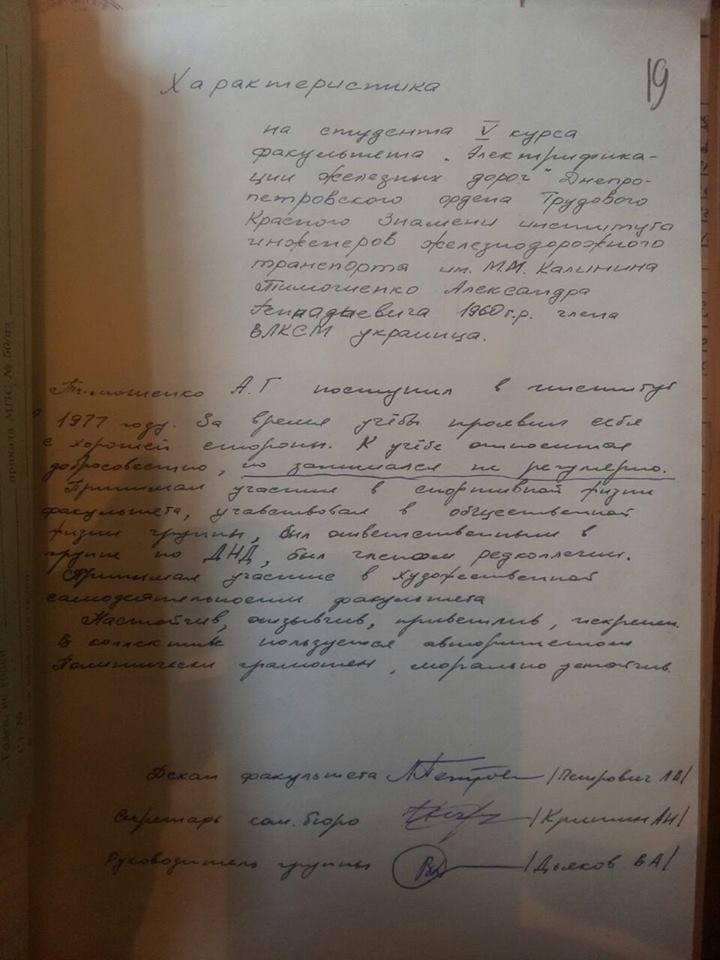 19
Характеристика
на студента V курса
факультета „Электрифика-
ции железных дорог" Днепро-
петровского ордена Трудового
Красного Знамени института
инженеров железнодорожного
транспорта им. М.И. Калинина
Тимошенко Александра
Геннадьевича 1960 г.р. члена
ВЛКСМ украинца.
Тимошенко А.Г поступил в институт
в 1977 году. За время учёбы проявил себя
с хорошей стороны. К учёбе относился
добросовестно, но занимался не регулярно.
Принимал участие в спортивной жизни
факультета, учавствовал в общественной
жизни группы, был ответственным в
группе по ДНД, был членом редколлегии.
Принимал участие в художественной
самодеятельности факультета
Настойчив, отзывчив, приветлив, искренен.
В коллективе пользуется авторитетом
Политически грамотен, морально устойчив.
Декан факультета /Петрович ЛВ/
Секретарь ком. бюро / АН/
Руководитель группы /Дьяков ВА/
приказа МПС № 50/из